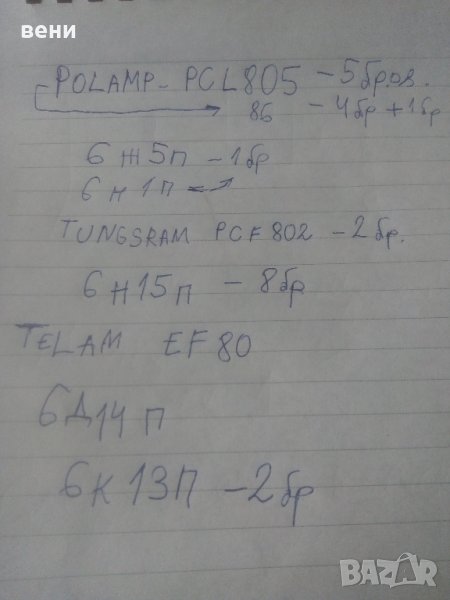 вени
POLAMP - PCL805 - 5 броя.
86 - 4бр + 1бр
6 Ж 5П - 1бр
6 Н 1П
TUNGSRAM PCF 802 - 2бр.
6Н15П - 8бр
TELAM EF80
6Д14П
6К13П - 2бр
BAZAR